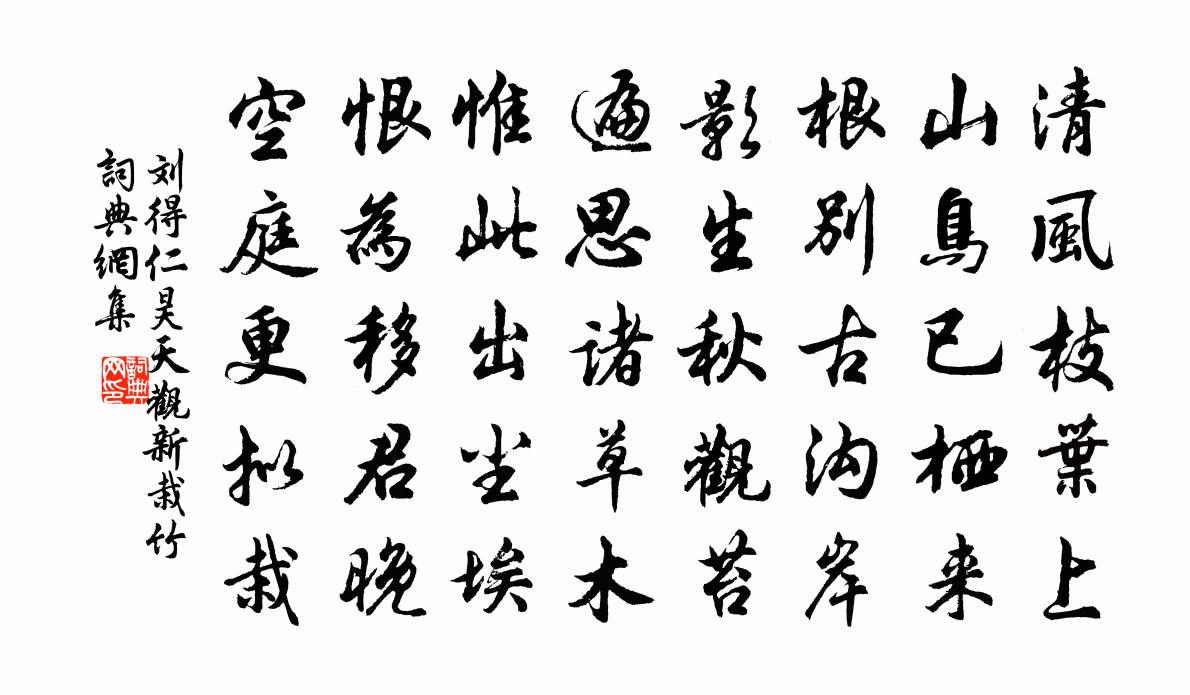 清風枝葉上
山鳥已栖来
根別古沟岸
影生秋觀苔
遍思諸草木
惟此出尘埃
恨為移君晚
空庭更拟栽
刘得仁昊天觀新栽竹
詞典網集
詞典网印